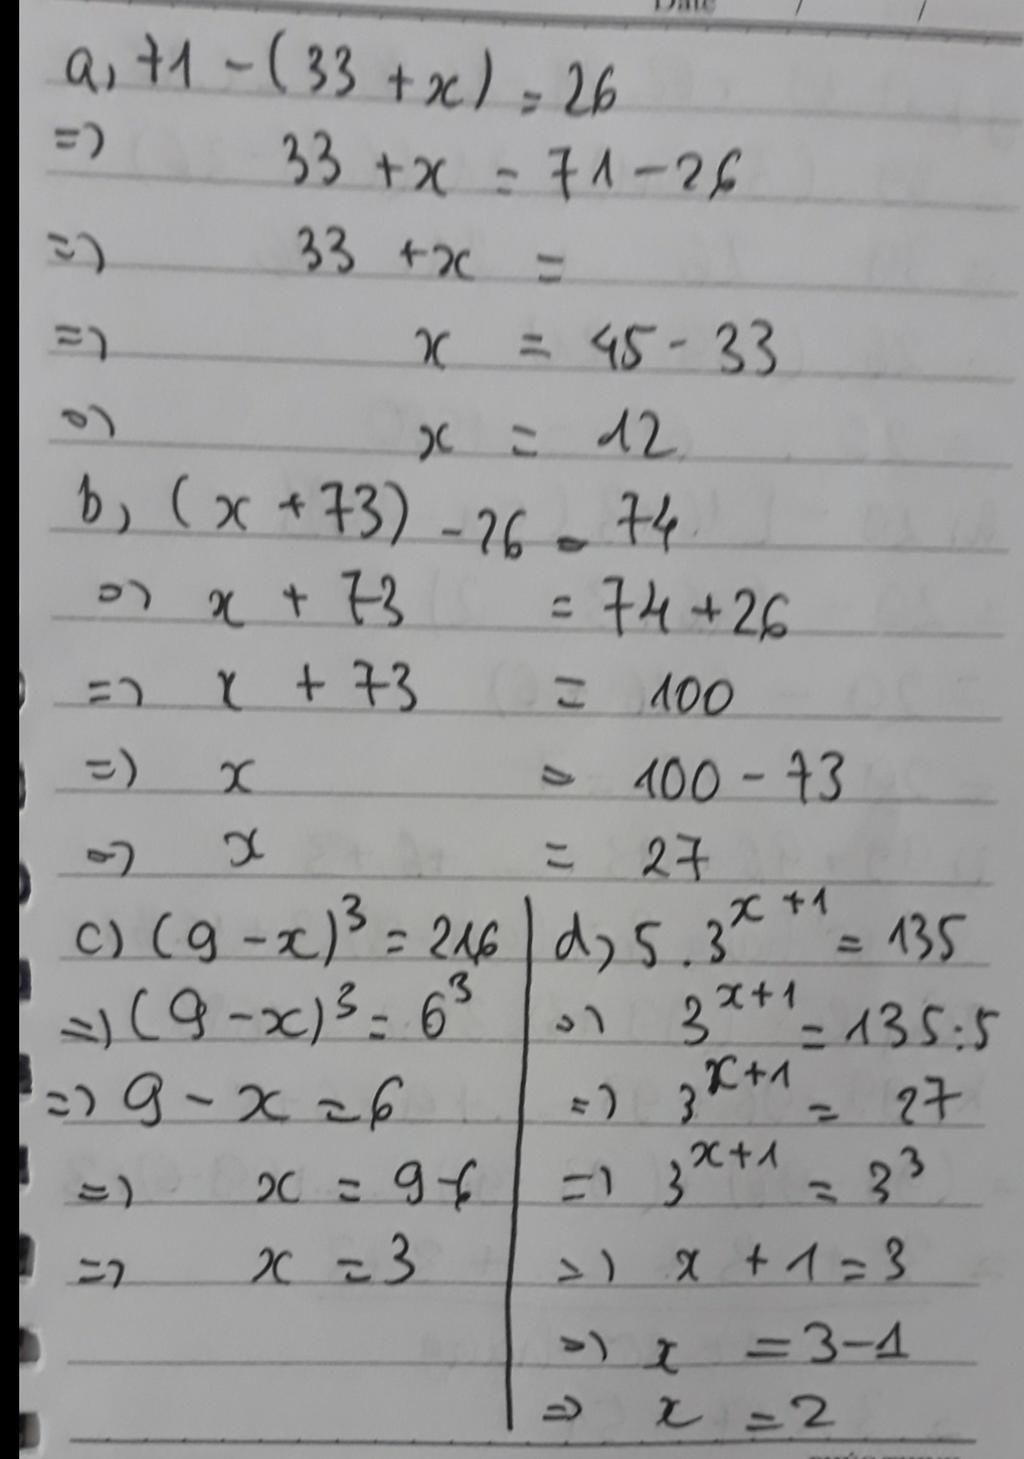 Date / /
a, 71 - (33 + x) = 26
=> 33 + x = 71 - 26
=> 33 + x =
=> x = 45 - 33
=> x = 12
b, (x + 73) - 26 = 74
=> x + 73 = 74 + 26
=> x + 73 = 100
=> x = 100 - 73
=> x = 27
c) (9 - x)³ = 216
=> (9 - x)³ = 6³
=> 9 - x = 6
=> x = 9 - 6
=> x = 3
d, 5 . 3^{x+1} = 135
=> 3^{x+1} = 135 : 5
=> 3^{x+1} = 27
=> 3^{x+1} = 3³
=> x + 1 = 3
=> x = 3 - 1
=> x = 2